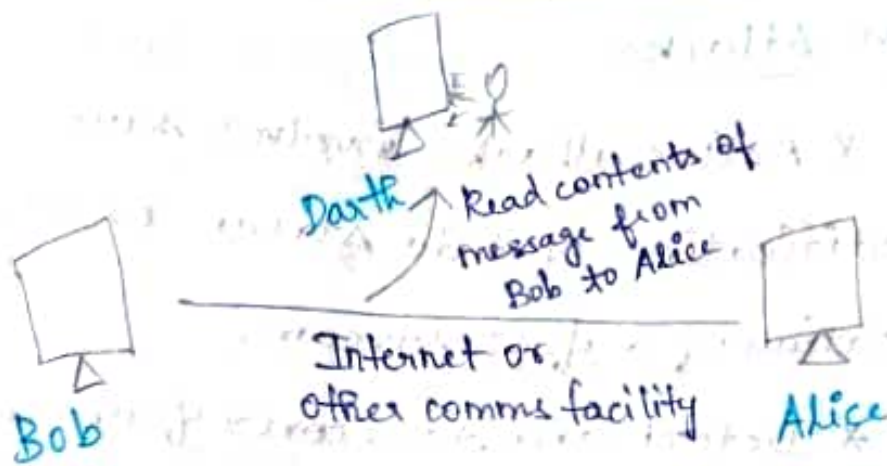 Darth
Read contents of
message from
Bob to Alice
Internet or
other comms facility
Bob
Alice